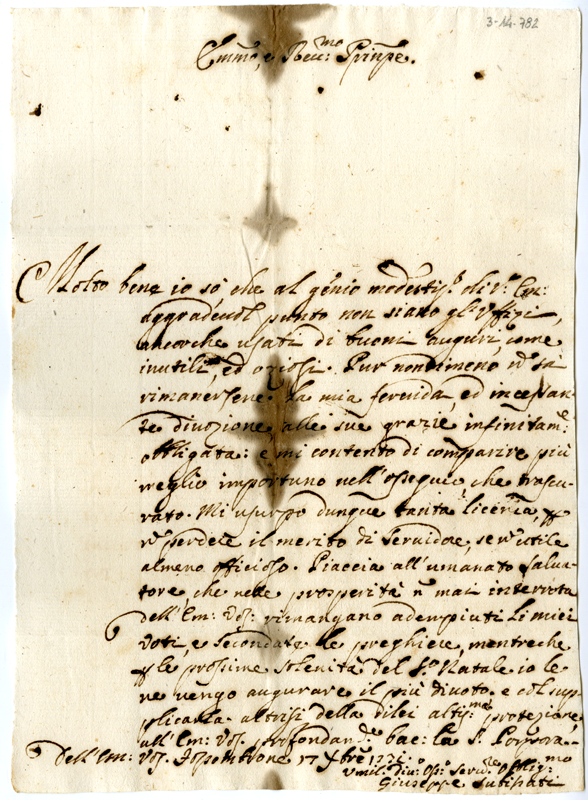 3-14-782
Emmo, e Revmo: Prinpe.
Molto bene io sò che al genio modestiso. di v: Em:
aggradeuoli punto non siano gl'uffizi,
ancorche usati di buoni auguri, come
inutili, ed oziosi. Pur nondimeno ñ sà
rimanersene la mia feruida, ed incessan-
te diuozione alle sue grazie infinitame:
obbligata: e mi contento di comparire più
meglio importuno nell'ossequio che trascu-
rato. Mi usurpo dunque tanta licenza,
ñ perdere il merito di Seruidore, se ñ utile
almeno officioso. Piaccia all'umanato Salua-
tore, che nelle prosperità ñ mai interrotta
dell'Em: Vos: rimangano adempiuti li miei
voti, e secondate le preghiere, mentreche
le prossime solenità del So. Natale io le
ne vengo augurare il più diuoto. e col sup-
plicarla altrisi della dilei altisma protezione,
all'Em: Vos: profondande bac: la S: Porpora..
Dell'Em: Vos: 17 Xbre 1721.
Umil: diu: Oss: Serude Obblig:mo
Giuseppe